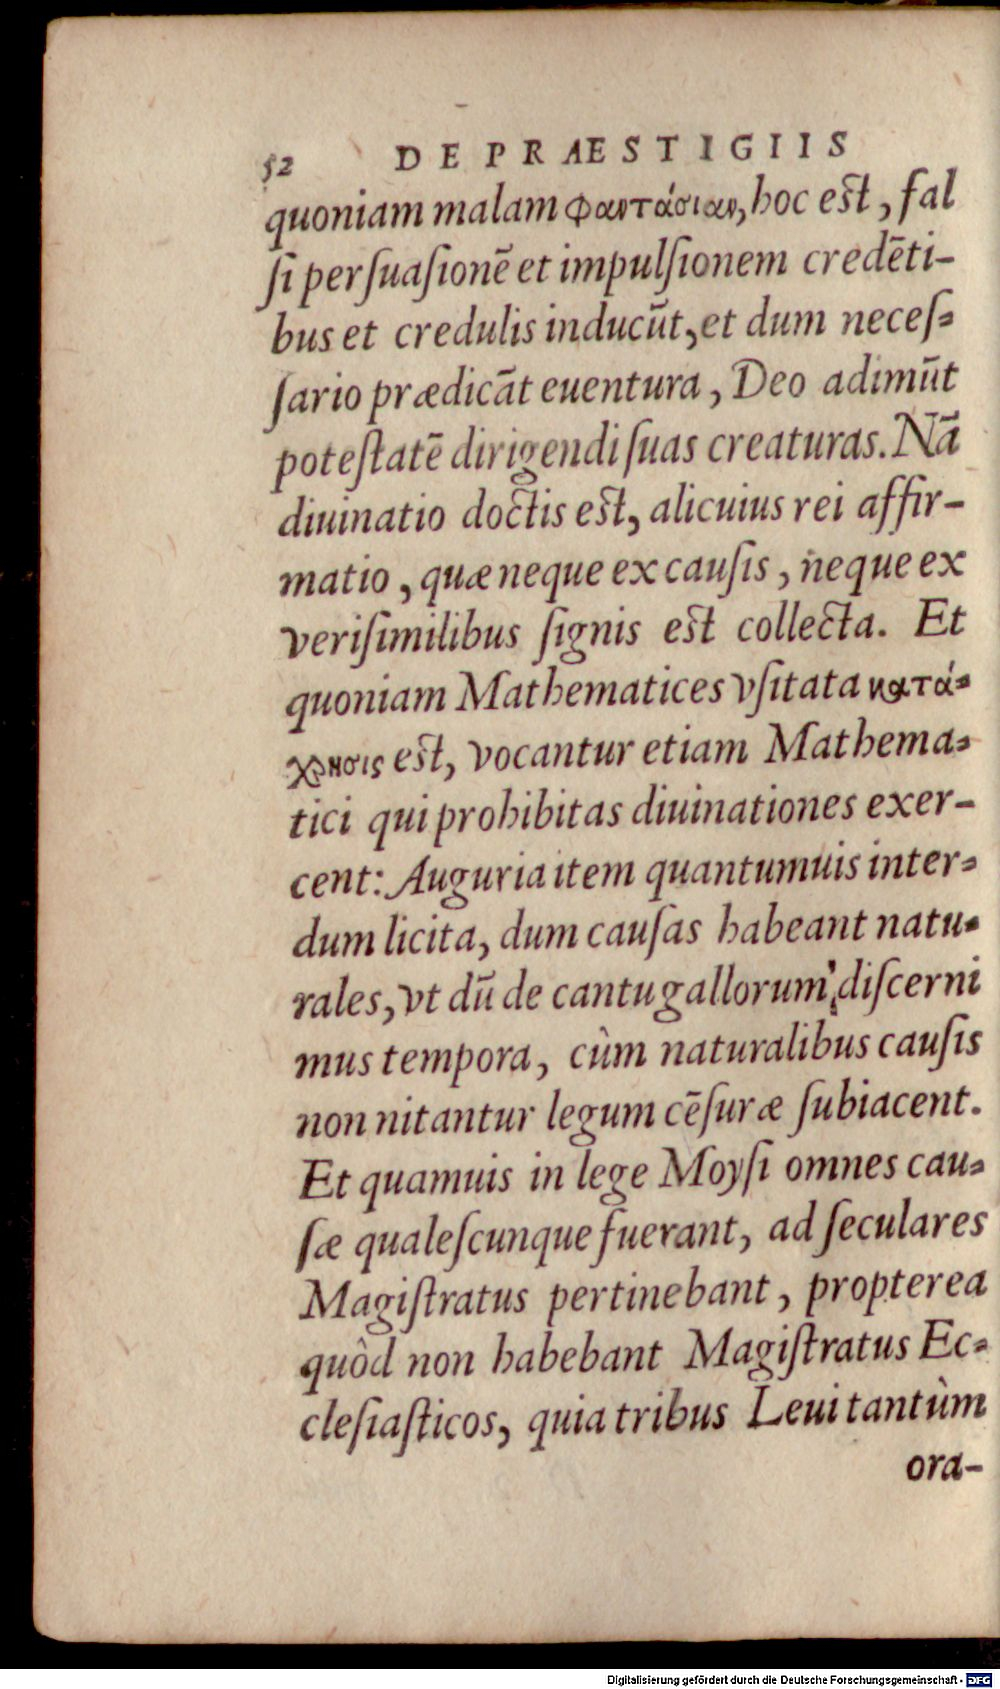 52 DE PRAESTIGIIS
quoniam malam φαντάσιαν, hoc est, fal
ſi perſuaſionē et impulſionem credēti-
bus et credulis inducūt, et dum neceſ-
ſario prædicāt euentura, Deo adimūt
poteſtatē dirigendi ſuas creaturas. Nā
diuinatio doctis est, alicuius rei affir-
matio, quæ neque ex cauſis, neque ex
veriſimilibus ſignis est collecta. Et
quoniam Mathematices vſitata κατά-
χρησις est, vocantur etiam Mathema-
tici qui prohibitas diuinationes exer-
cent: Auguria item quantumuis inter-
dum licita, dum cauſas habeant natu-
rales, vt dū de cantu gallorum diſcerni
mus tempora, cùm naturalibus cauſis
non nitantur legum cēſuræ ſubiacent.
Et quamuis in lege Moyſi omnes cau-
ſæ qualeſcunque fuerant, ad ſeculares
Magiſtratus pertinebant, propterea
quòd non habebant Magiſtratus Ec-
cleſiaſticos, quia tribus Leui tantùm
ora-
Digitalisierung gefördert durch die Deutsche Forschungsgemeinschaft - DFG